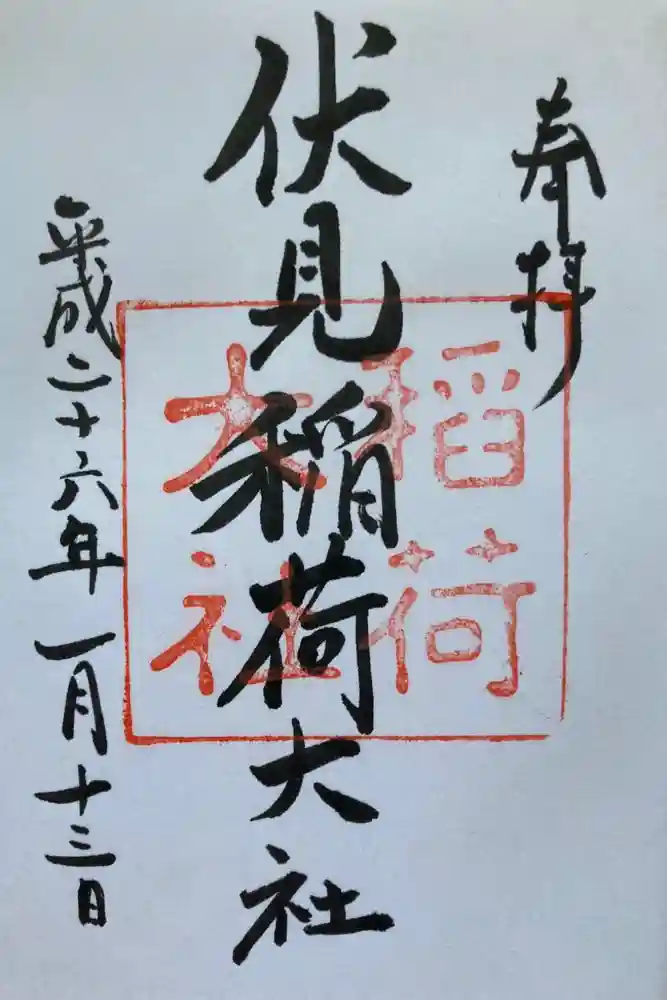 奉拝
伏見稲荷大社
稲荷
大社
平成二十六年一月十三日